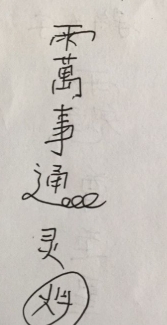 雨萬事通灵